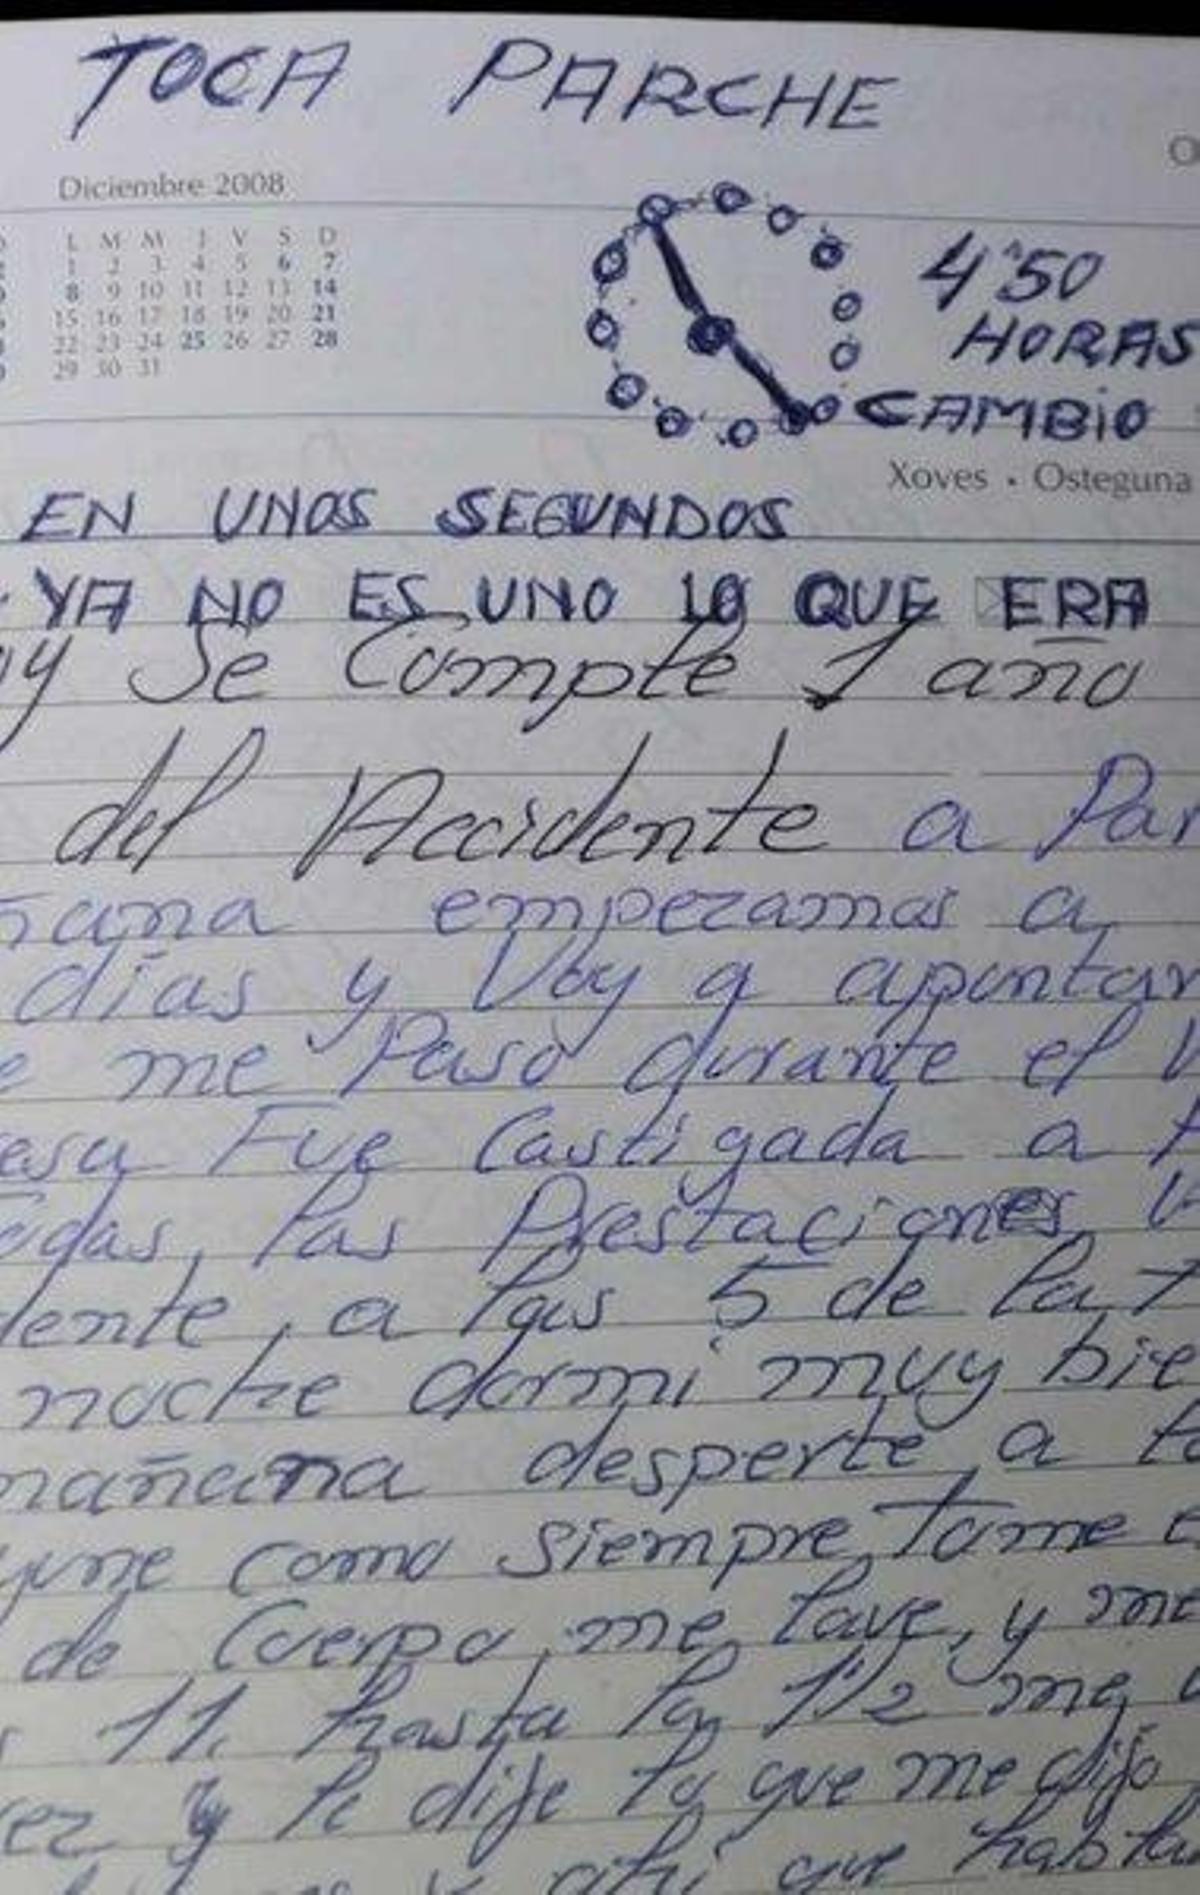 TOCA PARCHE
Diciembre 2008
L M M J V S D
1 2 3 4 5 6 7
8 9 10 11 12 13 14
15 16 17 18 19 20 21
22 23 24 25 26 27 28
29 30 31
4'50
HORAS
CAMBIO
Xoves • Osteguna
EN UNOS SEGUNDOS
YA NO ES UNO LO QUE ERA
oy Se Cumple 1 año
del Accidente a Par
ñana empezamos a
dias y Voy a apuntar
e me Paso durante el
esu Fue Castigada a
odas, las Prestaciones
dente, a las 5 de la T
noche dormi muy bie
mañana desperte, a to
yune como siempre, Tome e
de Cuerpo, me lave, y me
s 11. hasta la 1½ me
ez y le dije lo que me dijo
y ahi que habla